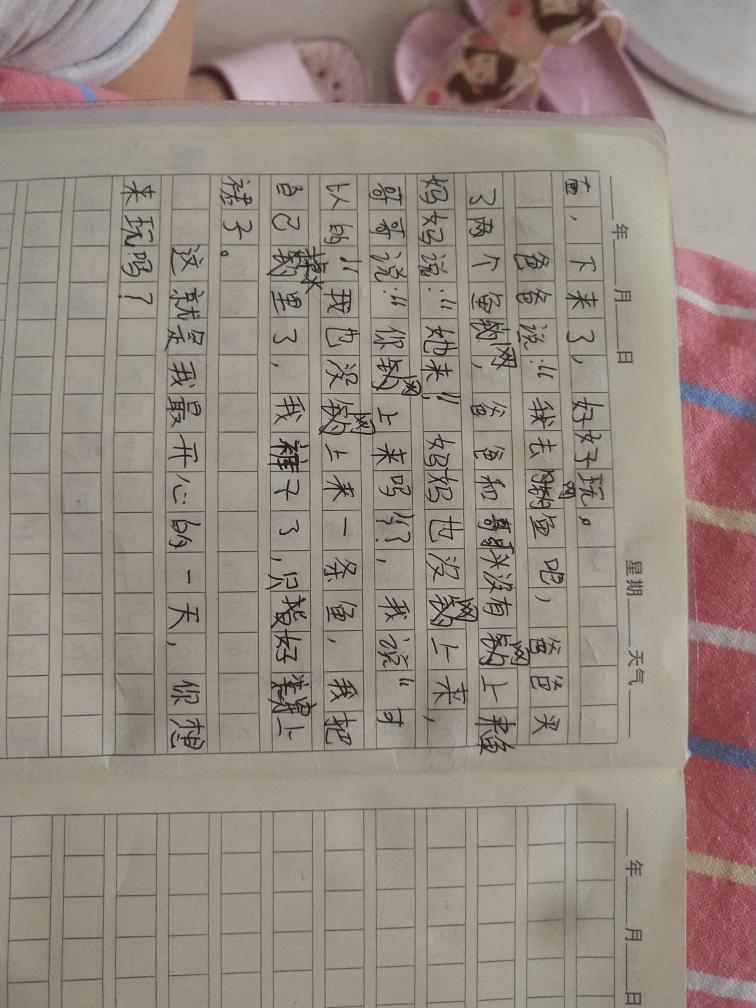 年 月 日 星期 天气
面，下来了，好好玩。
爸爸说：“我去网鱼吧，爸爸买
了两个鱼网，爸爸和哥哥没有网上来鱼
妈妈说：“她来”妈妈也没网上来，
哥哥说：“你网上来吗们，我说“可
以的“我也没网上来一条鱼，我把
自己掉水里了，我裤子了，只好穿上
裙子。
这就是我最开心的一天，你想
来玩吗？
年 月 日